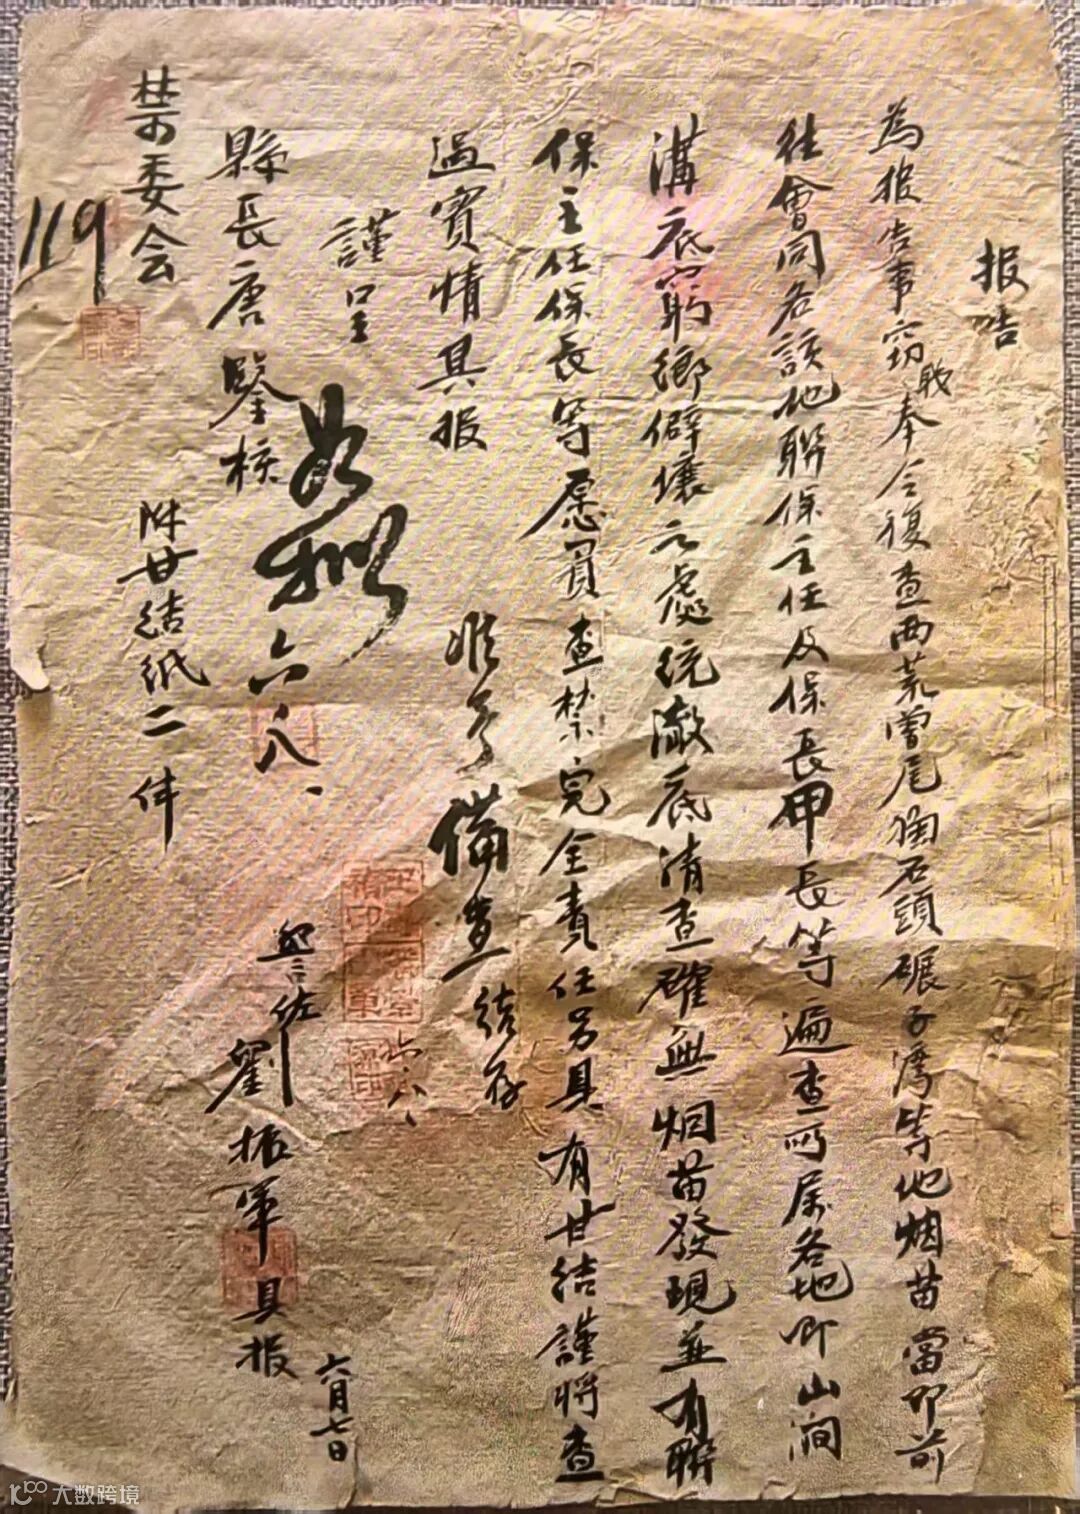 报告
為报告事窃職奉令復查西荒營尾狗石頭碾子溝等地烟苗當即前
往會同各該地聯保主任及保長甲長等遍查所属各地即山澗
溝底窮鄉僻壤之處统澈底清查確無烟苗發現並有聯
保主任保長等愿負查禁完全責任另具有甘结謹將查
過實情具报
謹呈
縣長唐鑒核
禁委会
119
附甘结纸二件
如拟
六八、
准予備查结存
六八、
劉振軍具报
六月七日
大数跨境